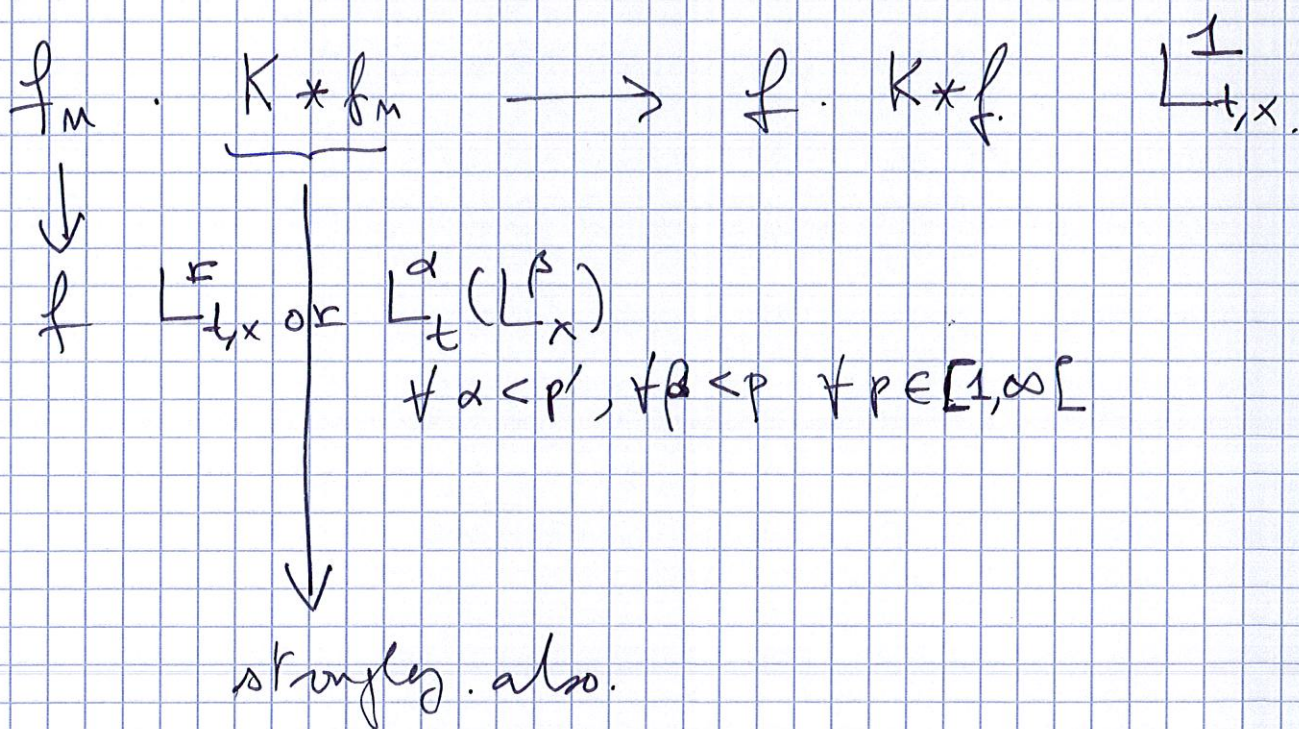 f_n . K * f_n ⟶ f . K * f. L^1_{t,x}.
↓
f L^r_{t,x} or L^α_t (L^β_x)
∀ α < p', ∀ β < p ∀ p ∈ [1,∞[
strongly. also.